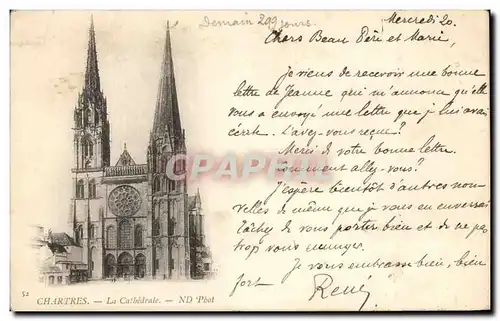 Demain 299 jours.
Mercredi 20.
Chers Beau Père et Marie,
Je viens de recevoir une bonne
lettre de Jeanne qui m'annonce qu'elle
vous a envoyé une lettre que je lui avais
écrite. L'avez-vous reçue?
Merci de votre bonne lettre.
Comment allez-vous?
J'espère bientôt d'autres nou-
velles de même que je vous en enverrai
Tâchez de vous porter bien et de ne pas
trop vous ennuyer.
Je vous embrasse bien, bien
fort
René
CPARAMA
52
CHARTRES. - La Cathédrale. - ND Phot